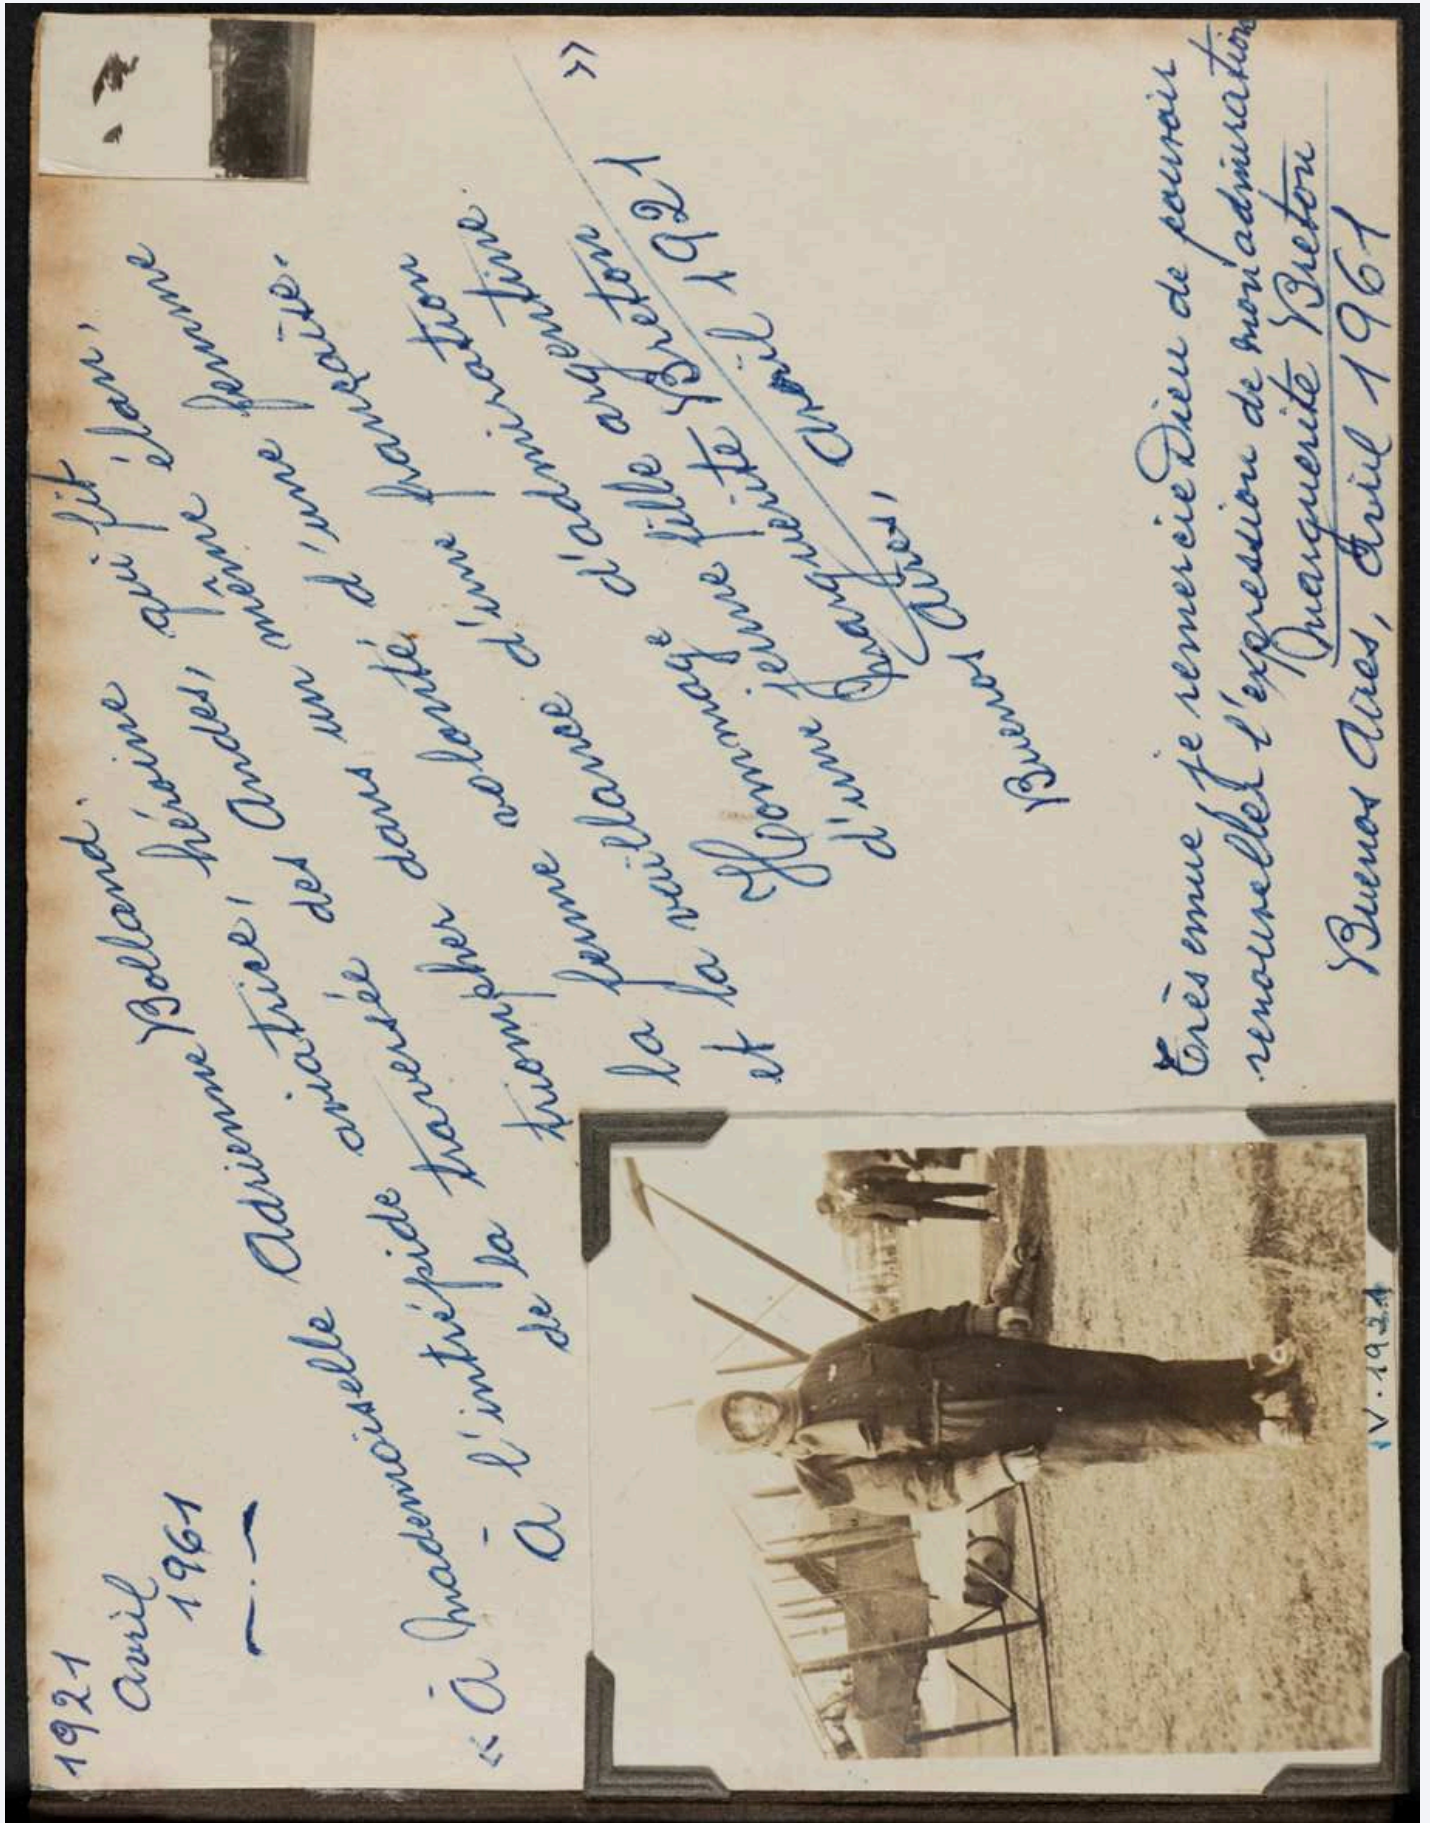 1921
Avril
1961
« À Mademoiselle Adrienne Bolland.
À l'intrépide aviatrice, héroïne qui fit,
de la traversée des Andes,
triompher dans un même élan,
la ferme volonté d'une femme
et la vaillance d'une française.
Hommage d'admiration
d'une jeune fille argentine.
Marguerite Breton
Buenos Aires, Avril 1921 »
Très emue je remercie Dieu de pouvoir
renouveller l'expression de mon admiration
Marguerite Breton
Buenos Aires, Avril 1961
IV.1921